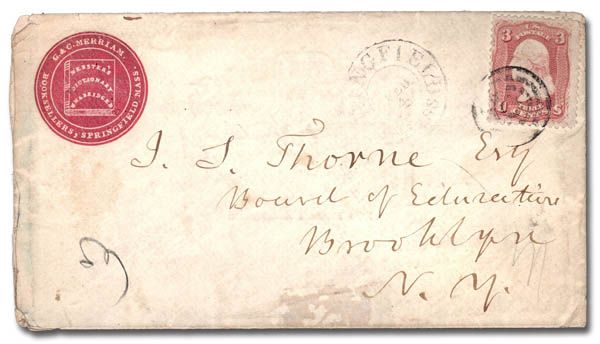 G. & C. MERRIAM.
BOOKSELLERS, SPRINGFIELD MASS.
WEBSTER'S
DICTIONARY
UNABRIDGED
NGFIELD
3 U.S. POSTAGE 3
THREE
CENTS
J. S. Thorne Esq
Board of Education
Brooklyn
N. Y.